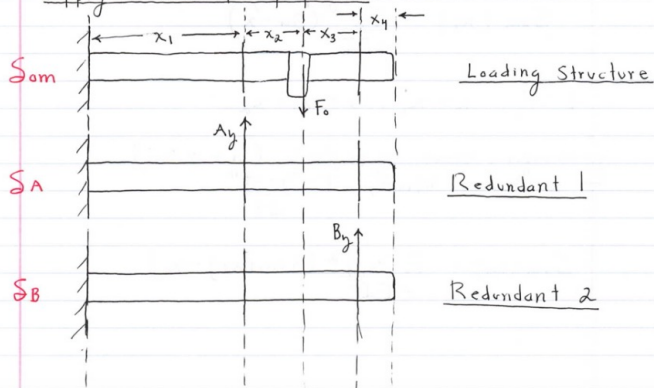 x₁ x₂ x₃ x₄
δom Loading Structure
F₀
Ay
δA Redundant 1
By
δB Redundant 2